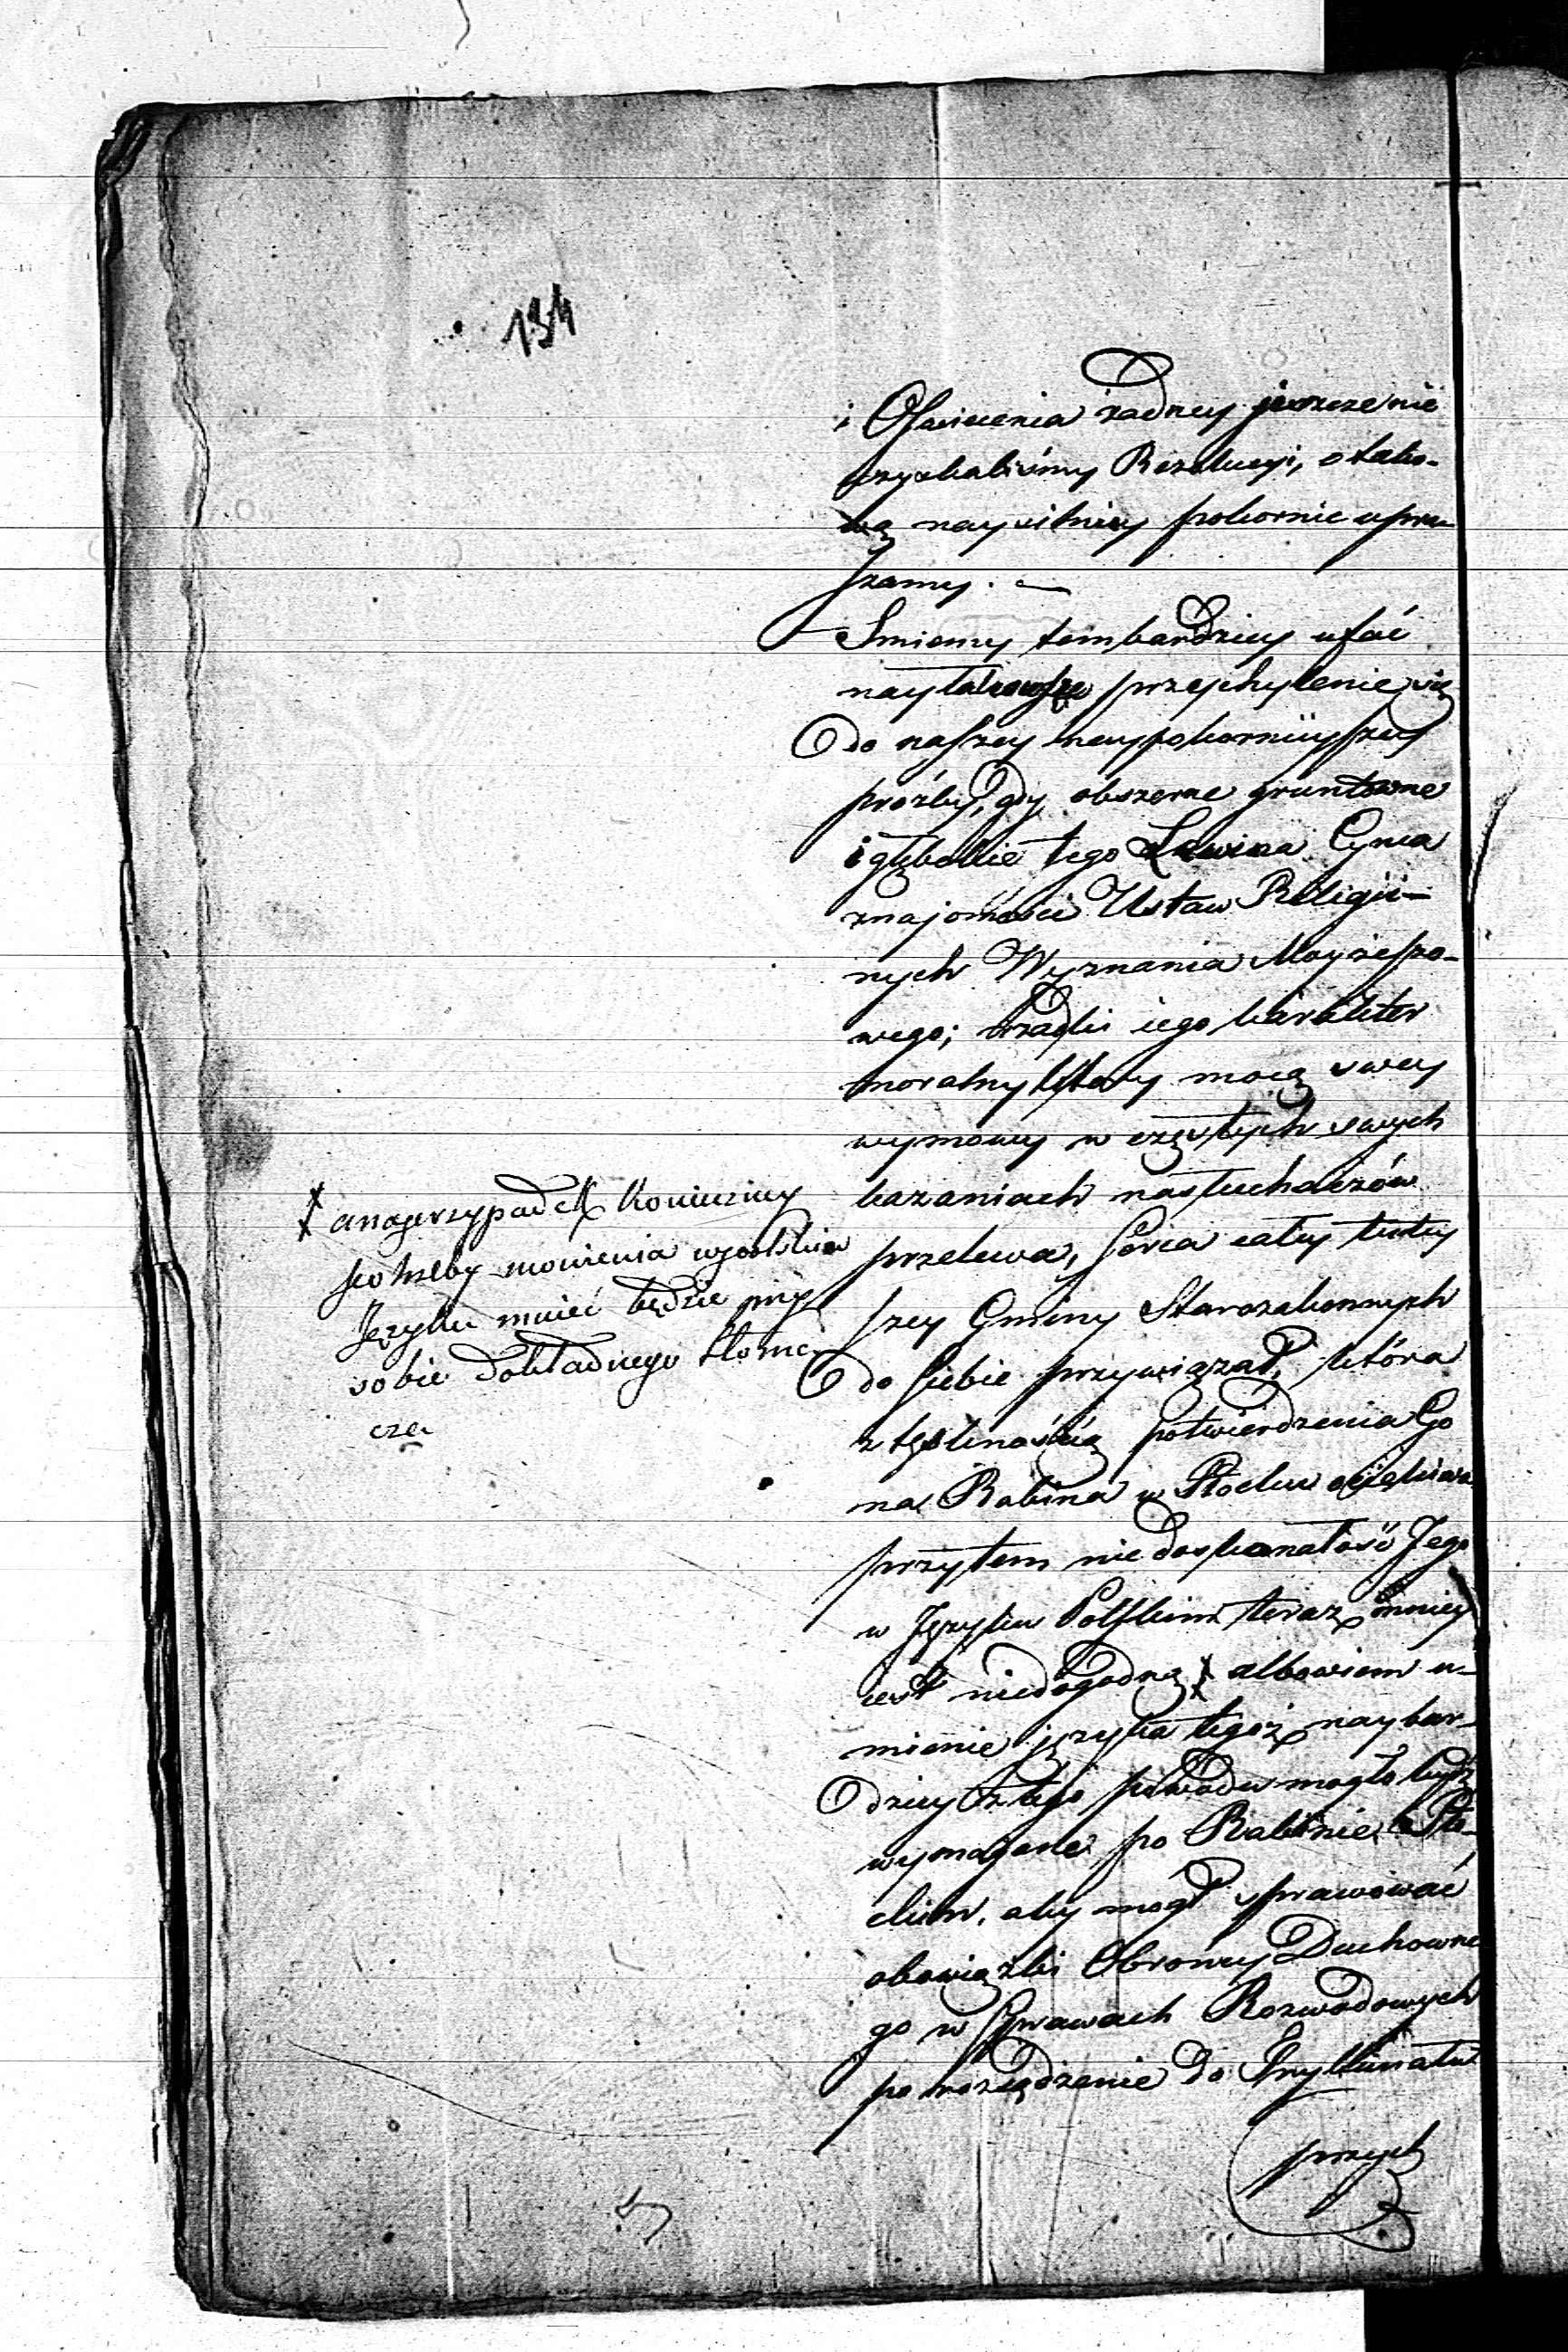 134
i Oświecenia żadney jeszcze nie
uzyskaliśmy Rezolucyi, o tako-
wą nayusilniey pokornie upra-
szamy. —
Smiemy tembardziey ufać
nayłaskawsze przychylenie się
do naszey naypokornieyszey
proźby, gdy obszerne gruntowne
i głębokie tego Lewina Cyna
znajomości Ustaw Religii-
nych Wyznania Mayżeszo-
wego; rzadki iego karakter
moralny który mocą swey
wymowy w częstych swych
kazaniach na słuchaczów
przelewa, serca całey tutey
szey Gminy Starozakonnych
do siebie przywiązał, która
z tęsknością potwierdzenia Go
na Rabina w Płocku oczekiwa
przytem niedoskonałość Jego
w Języku Polskim teraz mniey
iest niedogodną X albowiem u-
mienie języka tegoż naybar-
dziey z tego powodu mogło być
wymagane po Rabinie Pło-
ckim, aby mógł sprawować
obowiązki Obroncy Duchowne
go w Sprawach Rozwodowych
po rozsądzenie do Trybunału
przych
X a na przypadek konieczney
potrzeby mowienia w polskim
Języku mieć będzie przy
sobie dokładnego tłoma-
cza